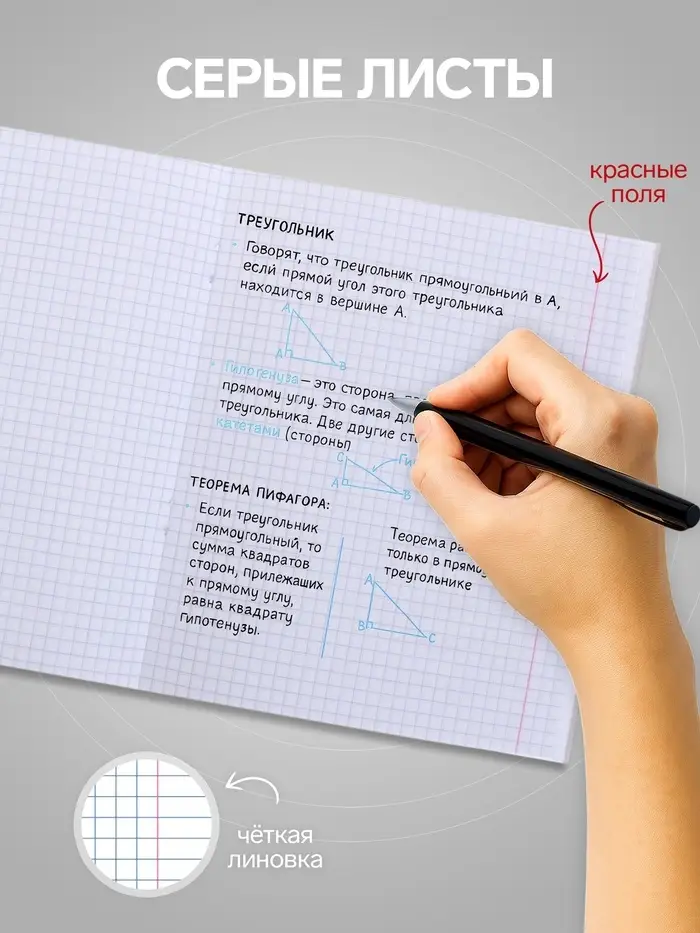 СЕРЫЕ ЛИСТЫ
красные
поля
ТРЕУГОЛЬНИК
Говорят, что треугольник прямоугольный в А,
если прямой угол этого треугольника
находится в вершине А.
A
A B
Гипотенуза – это сторона
прямому углу. Это самая
треугольника. Две другие
катетами (стороны
C
A B
ТЕОРЕМА ПИФАГОРА:
Если треугольник
прямоугольный, то
сумма квадратов
сторон, прилежащих
к прямому углу,
равна квадрату
Гипотенузы.
Теорема
только в
треугольнике
A
B C
чёткая
линовка